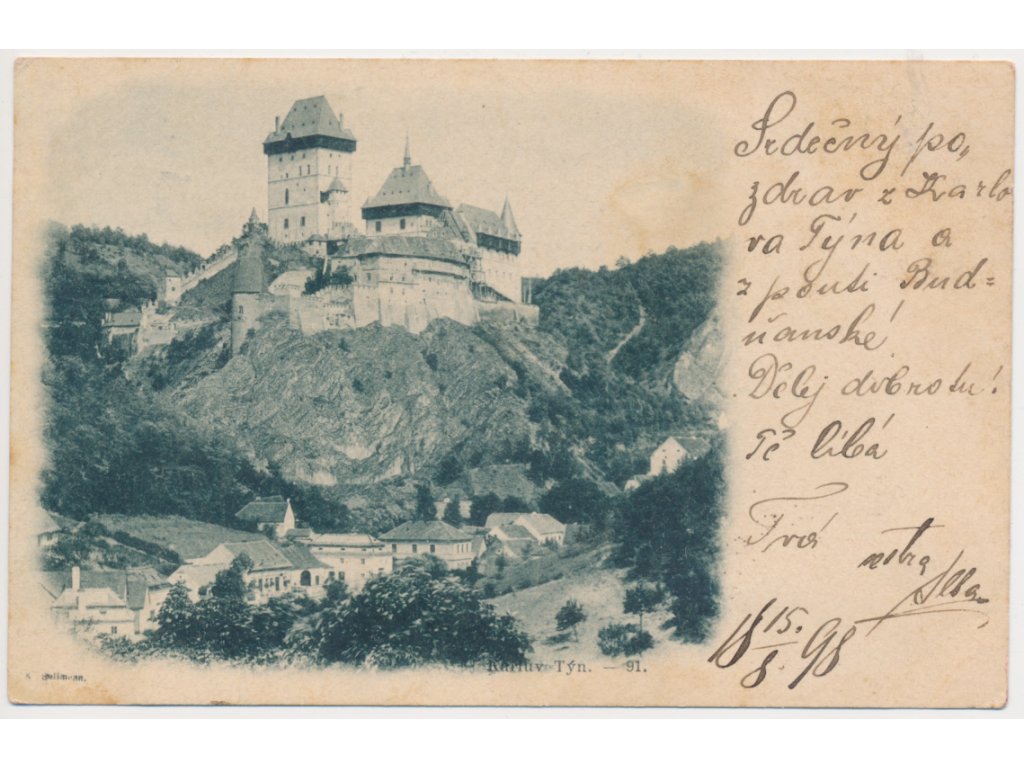 Srdečný po„
zdrav z Karlo
va Týna a
z pouti Bud=
ňanské!
Dělej dobrotu!
Tě líbá
Tvá
18 15./8. 98
Karlův Týn. — 91.